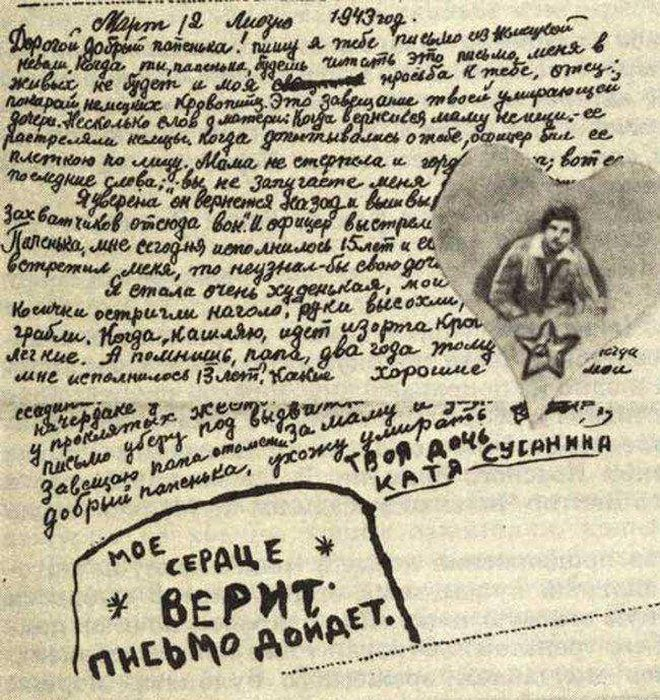 Март, 12 Лиозно 1943 год.
Дорогой добрый папенька! пишу я тебе письмо из немецкой
неволи. Когда ты, папенька, будешь читать это письмо, меня в
живых не будет и моя просьба к тебе, отец:
покарай немецких кровопийц. Это завещание твоей умирающей
дочери. Несколько слов о матери: Когда вернешся маму не ищи. — её
растреляли немцы. Когда допытывались о тебе, офицер бил её
плеткою по лицу. Мама не стерпела и а; вот её
последние слова: „вы не запугаете меня
Я уверена он вернется назад и вышвы
Захватчиков отсюда вон". И офицер выстрел
Папенька, мне сегодня исполнилось 15 лет и ес
встретил меня, то не узнал-бы свою доч
Я стала очень худенькая, мои
косички остригли наголо, руки высохли,
грабли. Когда кашляю, идет изо рта кро
легкие. А помнишь, папа, два года тому когда
мне исполнилось 13 лет, Какие хорошие мои
ссадин
на чердаке у
у проклятых жест
письмо уберу под выдви
Завещаю папа отомсти за маму и
добрый папенька, ухожу умирать
ТВОЯ ДОЧЬ
КАТЯ СУСАНИНА
МОЕ
СЕРДЦЕ
ВЕРИТ.
ПИСЬМО ДОЙДЕТ.